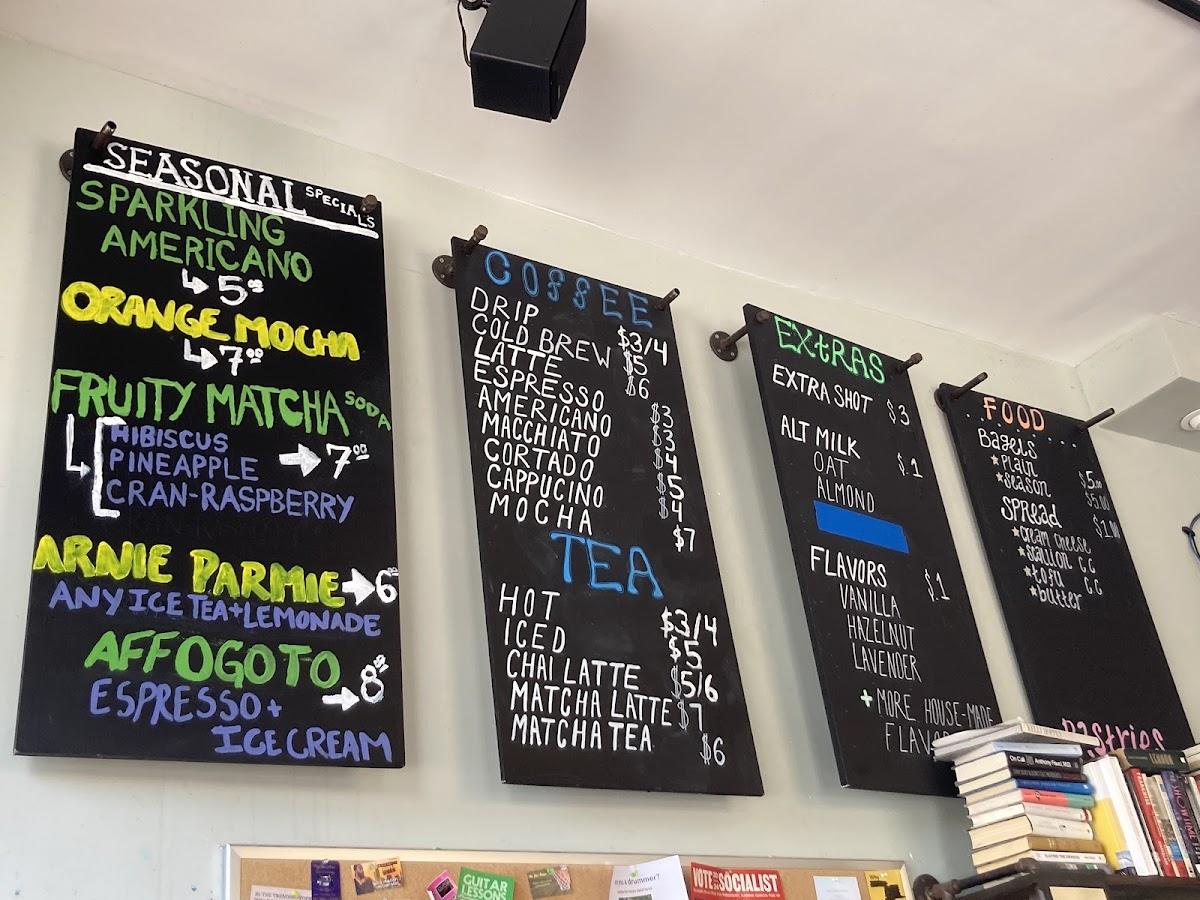 SEASONAL SPECIALS
SPARKLING
AMERICANO
5.00
ORANGE MOCHA
7.00
FRUITY MATCHA SODA
HIBISCUS
PINEAPPLE 7.00
CRAN-RASPBERRY
ARNIE PARMIE 6.00
ANY ICE TEA + LEMONADE
AFFOGOTO
8.00
ESPRESSO +
ICE CREAM
COFFEE
DRIP $3/4
COLD BREW $5
LATTE $6
ESPRESSO $3
AMERICANO $3
MACCHIATO $4
CORTADO $5
CAPPUCINO $4
MOCHA $7
TEA
HOT $3/4
ICED $5
CHAI LATTE $5/6
MATCHA LATTE $7
MATCHA TEA $6
EXtRAS
EXTRA SHOT $3
ALT MILK $.1
OAT
ALMOND
FLAVORS $1
VANILLA
HAZELNUT
LAVENDER
+ MORE HOUSE-MADE
FOOD
Bagels
*plain $5.00
*season $5.00
Spread $1.00
*cream cheese
*stallion c c
*tofu c c
*butter
pastries
GUITAR
LESSONS
drummer?
VOTE SOCIALIST
On Call Anthony Fauci, M.D.